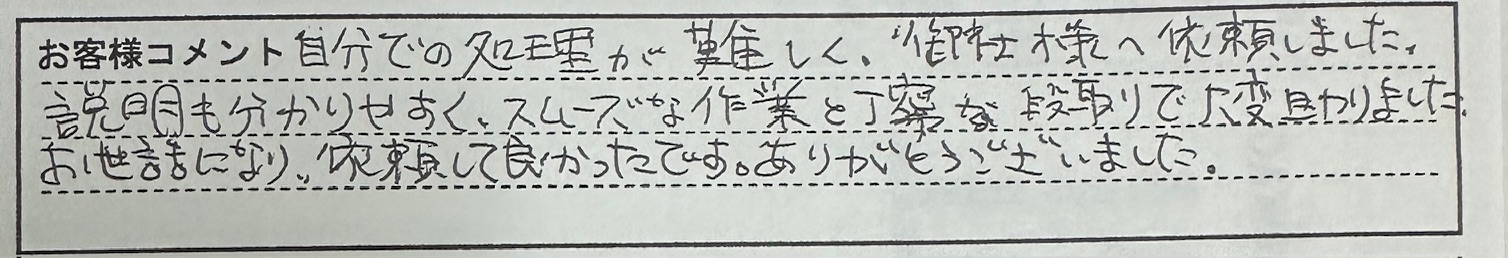 お客様コメント 自分での処理が難しく、御社様へ依頼しました。
説明も分かりやすく、スムーズな作業と丁寧な段取りで大変助かりました。
お世話になり、依頼して良かったです。ありがとうございました。